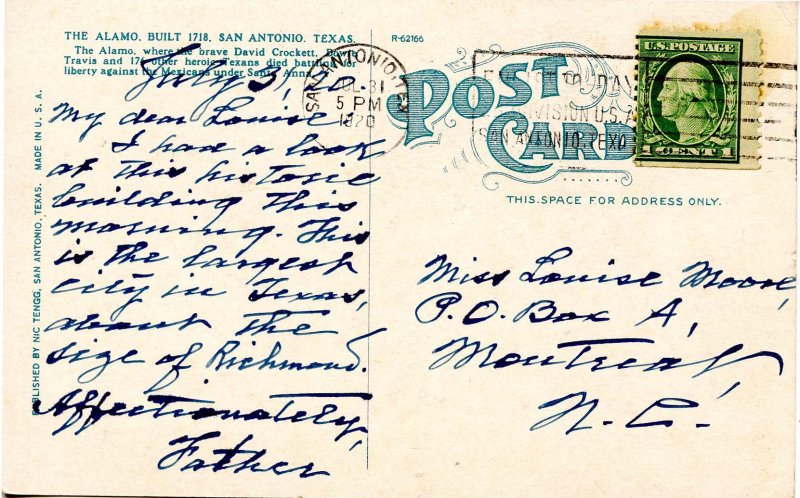 THE ALAMO, BUILT 1718, SAN ANTONIO, TEXAS.
The Alamo, where the brave David Crockett, Bowie
Travis and 176 other heroic Texans died battling for
liberty against the Mexicans under Santa Anna.
July 31, 20.
My dear Louise,
I had a look
at this historic
building this
morning. This
is the largest
city in Texas,
about the
size of Richmond.
Affectionately,
Father
PUBLISHED BY NIC TENGG, SAN ANTONIO, TEXAS. MADE IN U.S.A.
R-62166
SAN ANTONIO, TEX
JUL 31
5 PM
1920
POST
CARD
DIVISION U.S.A.
SAN ANTONIO, TEX
U.S. POSTAGE
1 CENT 1
THIS SPACE FOR ADDRESS ONLY.
Miss Louise Moore,
P.O. Box A,
Montreat,
N.C.